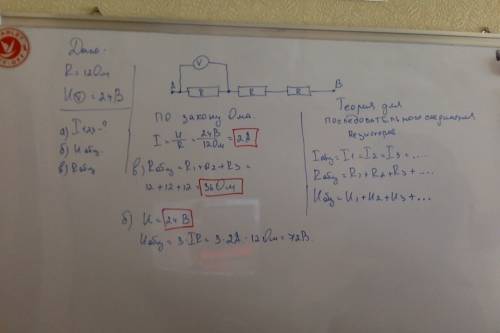 Дано:
R = 12 Ом
U(V) = 24 В
а) I
б) Uобщ
в) Rобщ
A V B
R R R
по закону Ома
I = U/R = 24В/12Ом = 2А
в) Rобщ = R1 + R2 + R3 =
12 + 12 + 12 = 36 Ом
б) U = 24 В
Uобщ = 3·IR = 3·2А·12Ом = 72В.
Теория для
последовательного соединения
резисторов
Iобщ = I1 = I2 = I3 = ....
Rобщ = R1 + R2 + R3 + ....
Uобщ = U1 + U2 + U3 + ....